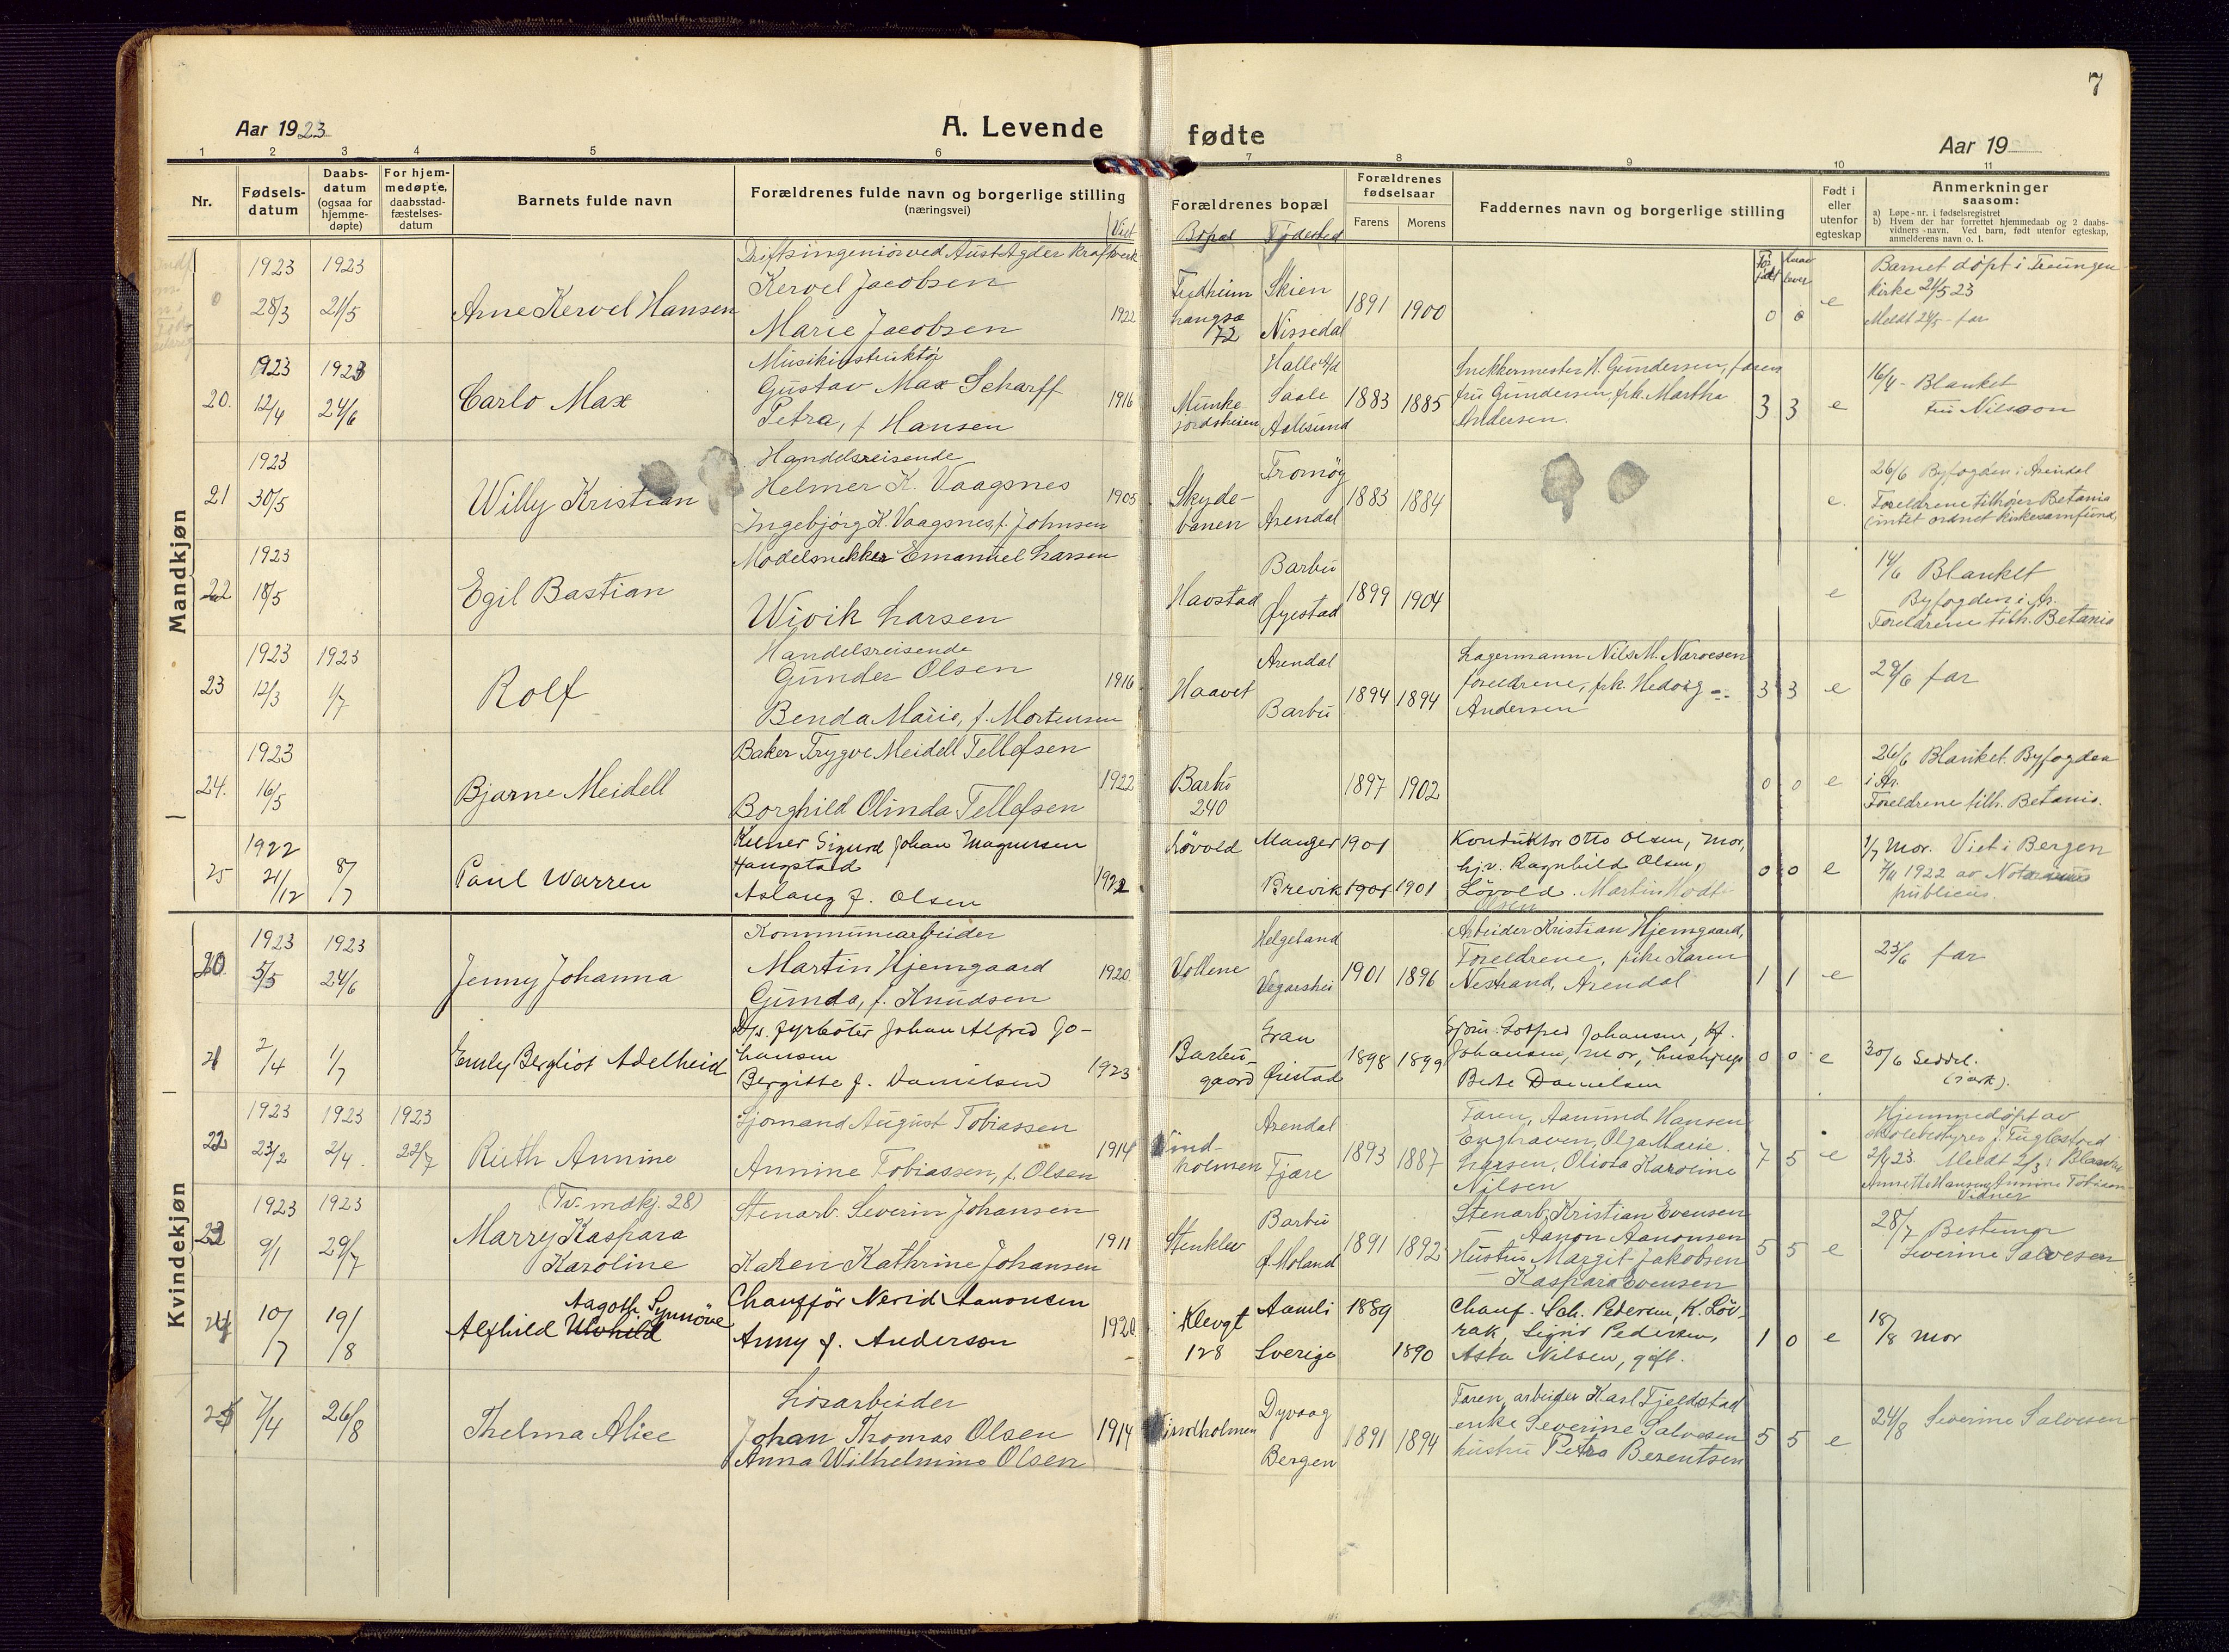 7
Aar 1923
A. Levende fødte
Aar 19
1 2 3 4 5 6 7 8 9 10 11
Nr.
Fødsels-
datum
Daabs-
datum
(ogsaa for
hjemme-
døpte)
For hjem-
medøpte,
daabsstad-
fæstelses-
datum
Barnets fulde navn
Forældrenes fulde navn og borgerlige stilling
(næringsvei)
Viet
Forældrenes bopæl
Bopæl Fødested
Forældrenes
fødselsaar
Farens Morens
Faddernes navn og borgerlige stilling
Født i
eller
utenfor
egteskap
Anmerkninger
saasom:
a) Løpe-nr. i fødselsregistret
b) Hvem der har forrettet hjemmedaab og 2 daabs-
vidners navn. Ved barn, født utenfor egteskap,
anmelderens navn o. l.
Mandkjøn
1923 1923
28/3 21/5
Arne Kervel Hansen
Driftsingeniør ved Aust Agder Kraftverk
Kervel Jacobsen
Marie Jacobsen
1922
Langsæ
72
Skien
Nissedal
1891 1900
0 0 e
Barnet døpt i Treungen
Kirke 21/5 23
Meldt 24/5 - far
20.
1923 1923
12/4 24/6
Carlo Max
Musikinstruktør
Gustav Max Scharff
Petra, f. Hansen
1916
Munke-
jordsheien
Halle a/d
Saale
Aalesund
1883 1885
Snekkermester H. Gundersen, faren
fru Gundersen, frk. Martha
Andersen.
3 3 e
16/4 - Blanket
Fru Nilsson
21
1923
30/5
Willy Kristian
Handelsreisende
Helmer K. Vaagsnes
Ingebjørg K. Vaagsnes, f. Johnsen
1905
Skyde-
banen
Tromøy
Arendal
1883 1884
e.
26/6 Byfogden i Arendal
Foreldrene tilhører Betania
(intet ordnet kirkesamfund)
22
1923
18/5
Egil Bastian
Modelsnekker Emanuel Larsen
Wivik Larsen
Havstad
Barbu
Øyestad
1899 1904
e
14/6 Blanket
Byfogden i Ar.
Foreldrene tilh. Betania
23
1923 1923
12/3 1/7
Rolf
Handelsreisende
Gunder Olsen
Benda Marie, f. Mortensen
1916
Haavet
Arendal
Barbu
1894 1894
Lagermann Nils M. Narvesen
foreldrene, frk. Hedvig
Andersen
3 3 e
29/6 far
24.
1923
16/5
Bjarne Meidell
Baker Trygve Meidell Tellefsen
Borghild Olinda Tellefsen
1922
Barbu
240
1897 1902
0 0 e
26/6 Blanket. Byfogden
i Ar.
Foreldrene tilh. Betania.
25
1922
21/12 8/7
Paul Warren
Kelner Sigurd Johan Magnussen
Haugstad
Aslaug f. Olsen
1922
Løvold
Manger
Brevik
1901
1901 1901
Konduktør Otto Olsen, mor,
hj.v. Ragnhild Olsen,
Løvold. Martin
Olsen
0 0 e
1/7 mor. Viet i Bergen
7/11 1922 av Notarius
publicus.
Kvindekjøn
20
1923 1923
5/5 24/6
Jenny Johanna
Kommunearbeider
Martin Hjemgaard
Gunda, f. Knudsen
1920
Vollene
Helgeland
Vegarshei
1901 1896
Arbeider Kristian Hjemgaard,
Foreldrene, pike Karen
Nestrand, Arendal
1 1 e
23/6 far
21
2/4 1/7
Emly Bergliot Adelheid
D/s. fyrbøter Johan Alfred Jo-
hansen
Bergitte f. Danielsen
1923
Barbu-
gaard
Gran
Øiestad
1898 1899
Johansen, mor, hustru
Berte Danielsen
0 0 e
30/6 Seddel.
22
1923 1923 1923
23/2 2/4. 22/7
Ruth Annine
Sjømand August Tobiassen
Annine Tobiassen, f. Olsen
1914
Vind-
holmen
Arendal
Fjære
1893 1887
Faren, Aanund Hansen
Enghaven, Olga Marie
Larsen, Olivia Karoline
Nilsen
7 5 e
Hjemmedøpt av
skolebestyrer J. Fuglestved
2/4 23. Meldt 2/3 i Blanket
Annette Hansen, Annine Tobiassen
Vidner
23
1923 1923
9/1 29/7
(Tv. mdkj. 28)
Marry Kaspara
Karoline
Stenarb. Severin Johansen
Karen Kathrine Johansen
1911
Stenklev
Barbu
Ø. Moland
1891 1892
Stenarb. Kristian Evensen
Aanon Aanonsen
Hustru Margit Jakobsen
Kaspara Evensen
5 5 e
28/7 Bestemor
Severine Salvesen
24
10/7 19/8
Aagoth Synnöve
Alfhild
Chauffør Nerid Aanonsen
Anny f. Anderson
1920
Klevgt
128
Aamli
Sverige
1889
1890
Chauf. Sah. Pedersen, K. Løv-
rak, Signe Pedersen,
Asta Nilsen, gift.
1 0 e
18/8 mor
25
7/4 26/8
Thelma Alice
Løsarbeider
Johan Thomas Olsen
Anna Wilhelmine Olsen
1914
Vindholmen
Dyvaag
Bergen
1891 1894
Faren, arbeider Karl Fjeldstad
enke Severine Salvesen
hustru Petra Berentsen
5 5 e
24/8 Severine Salvesen